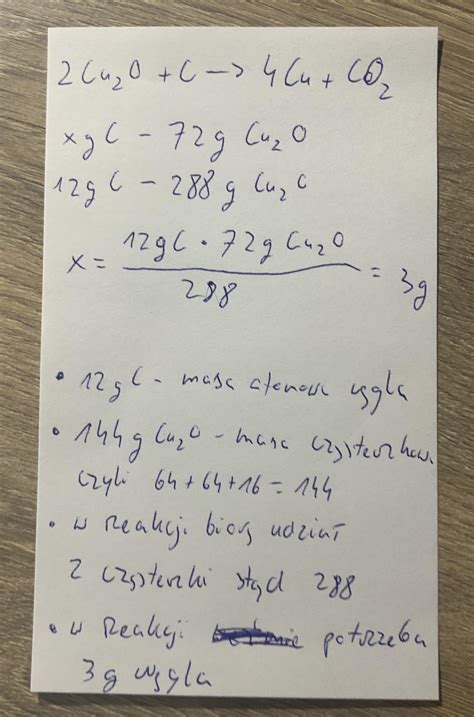 2Cu₂O + C → 4Cu + CO₂
x g C - 72 g Cu₂O
12 g C - 288 g Cu₂O
x = 12 g C · 72 g Cu₂O / 288 = 3g
• 12 g C - masa atomowa węgla
• 144 g Cu₂O - masa cząsteczkowa
czyli 64 + 64 + 16 = 144
• w reakcji biorą udział
2 cząsteczki stąd 288
• w reakcji potrzeba
3 g węgla